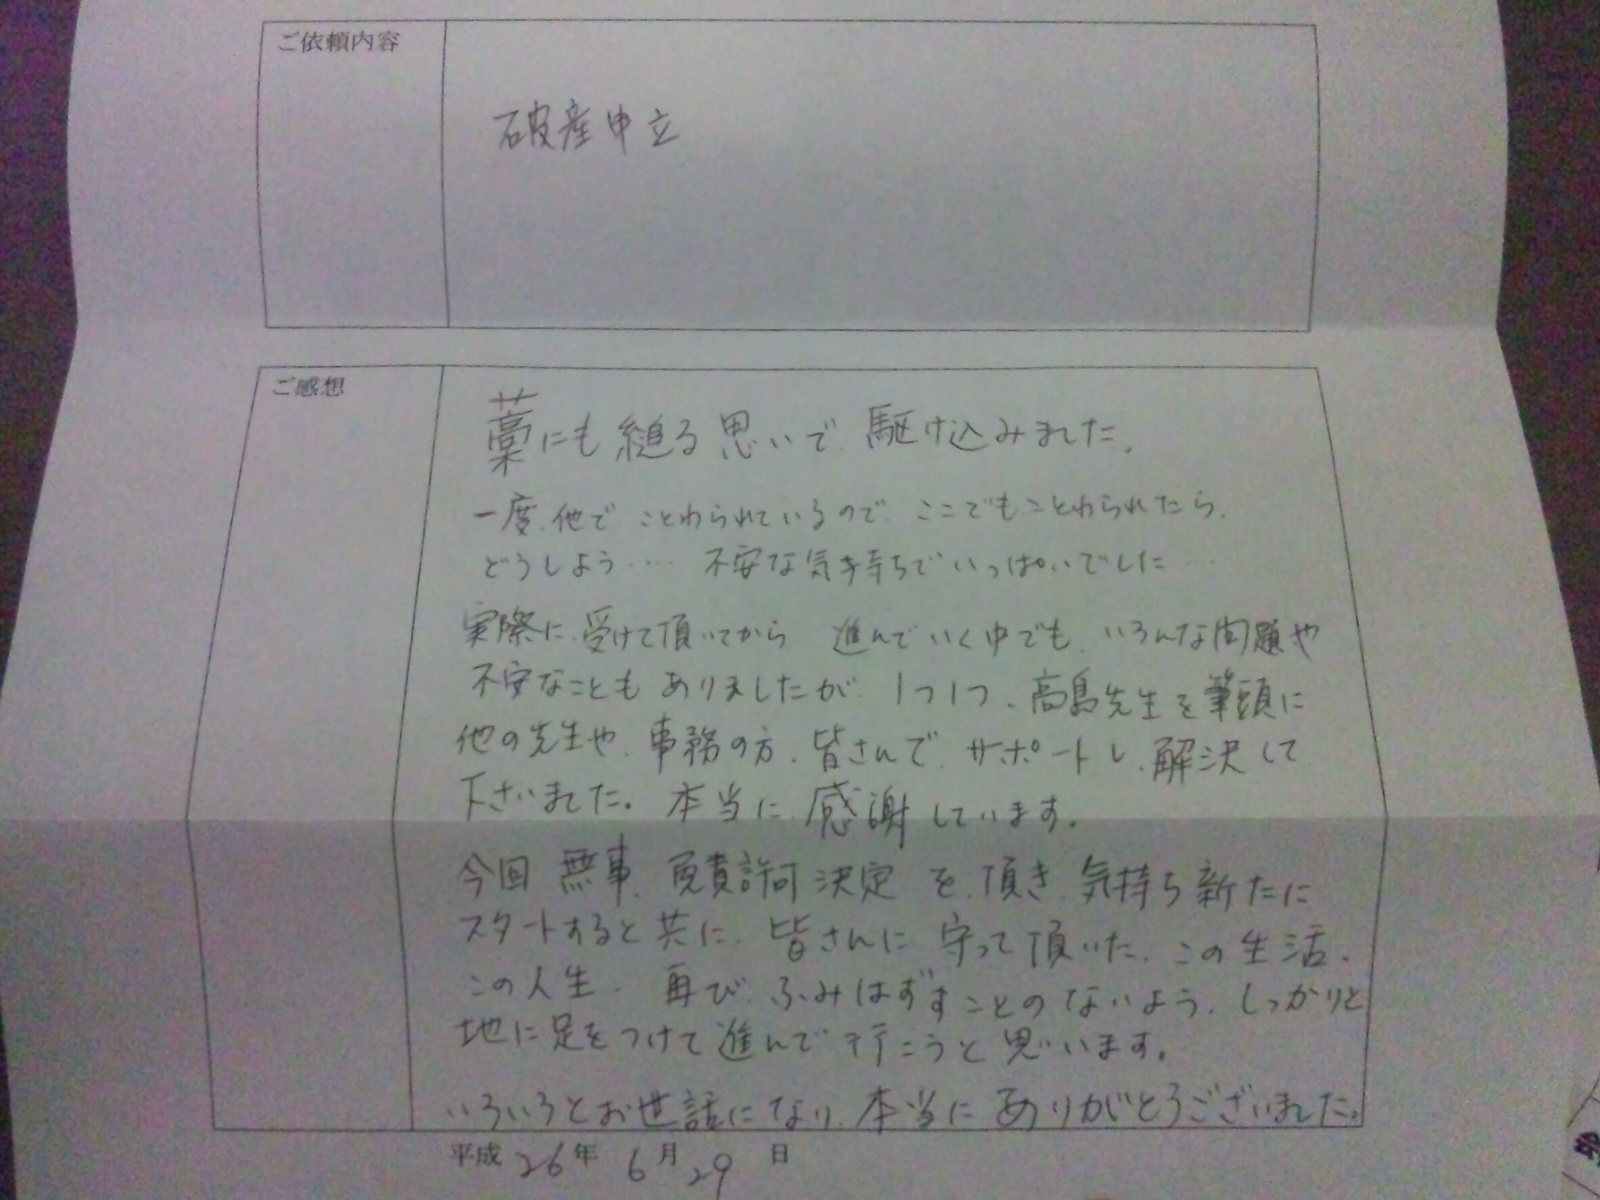 ご依頼内容
破産申立
ご感想
藁にも縋る思いで、駆け込みました。
一度、他でことわられているので、ここでもことわられたら、
どうしよう…‥ 不安な気持ちでいっぱいでした…
実際に、受けて頂いてから 進んでいく中でも、いろんな問題や
不安なこともありましたが、1つ1つ、高島先生を筆頭に
他の先生や、事務の方、皆さんで、サポートし、解決して
下さいました。本当に、感謝しています。
今回 無事、免責許可決定を、頂き、気持ち新たに
スタートすると共に、皆さんに守って頂いた、この生活、
この人生、再び、ふみはずすことのないよう、しっかりと
地に足をつけて進んで行こうと思います。
いろいろとお世話になり、本当にありがとうございました。
平成 26 年 6 月 29 日